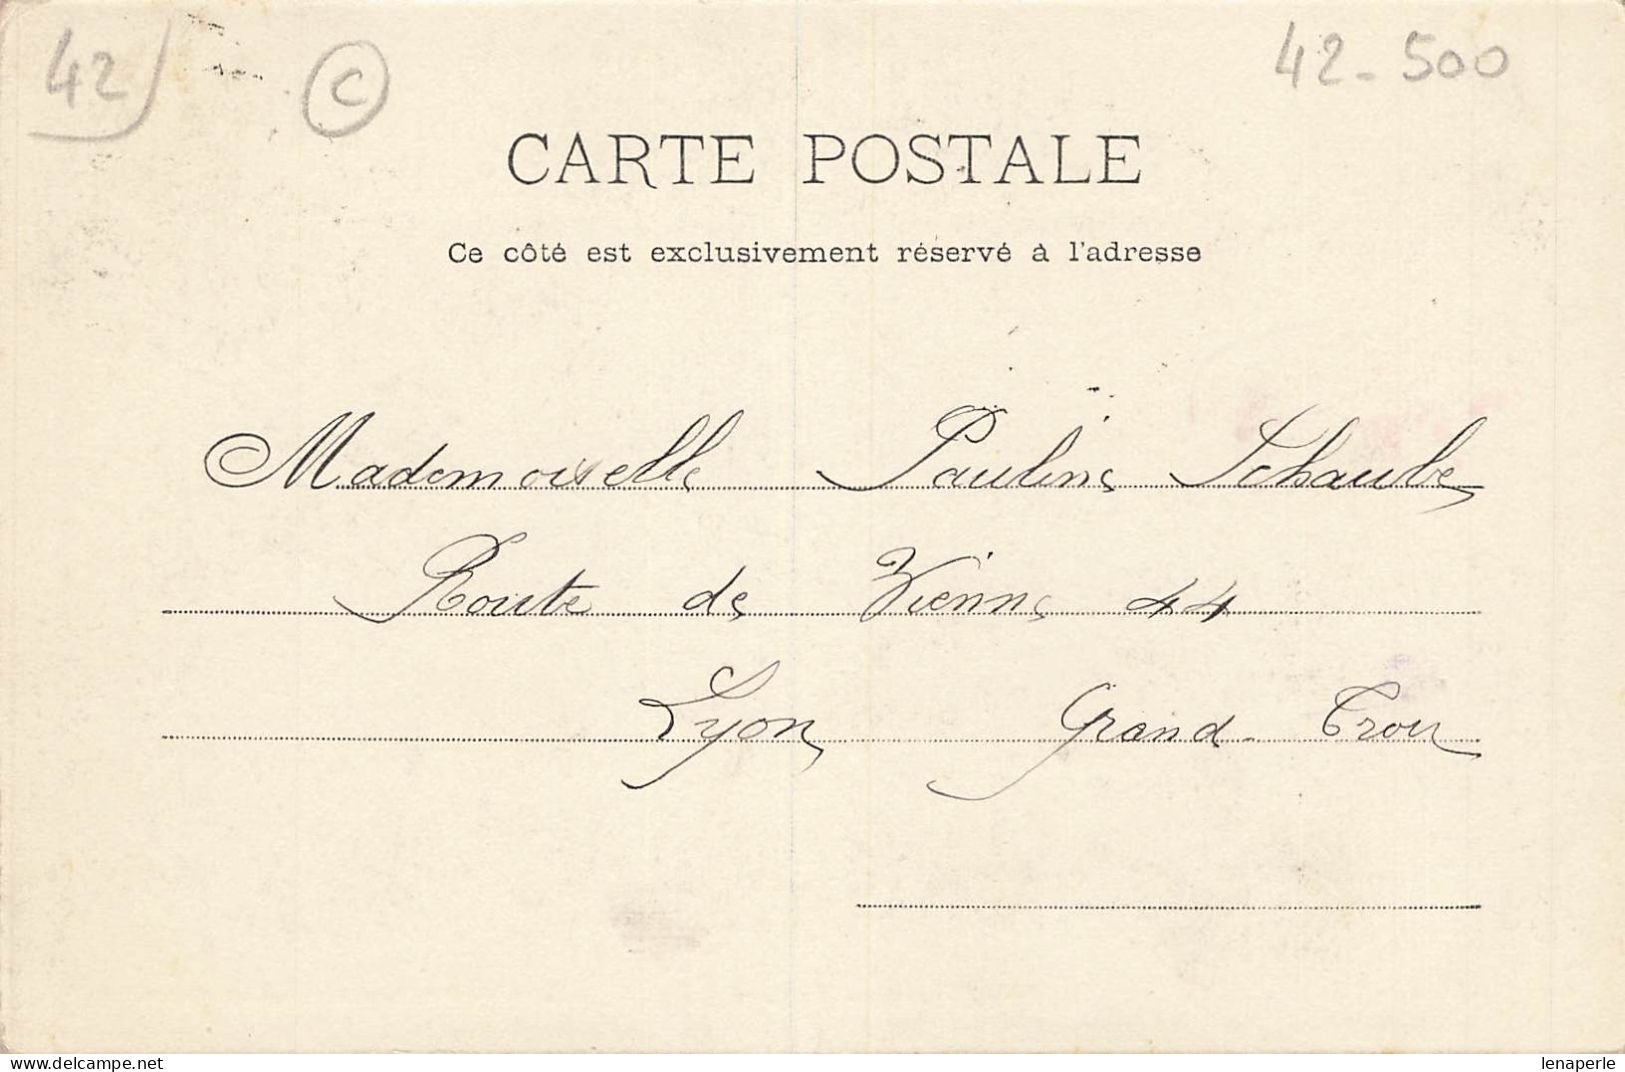 42 C 42-500
CARTE POSTALE
Ce côté est exclusivement réservé à l'adresse
Mademoiselle Pauline Schaube
Route de Vienne 44
Lyon Grand-Trou
www.delcampe.net lenaperle